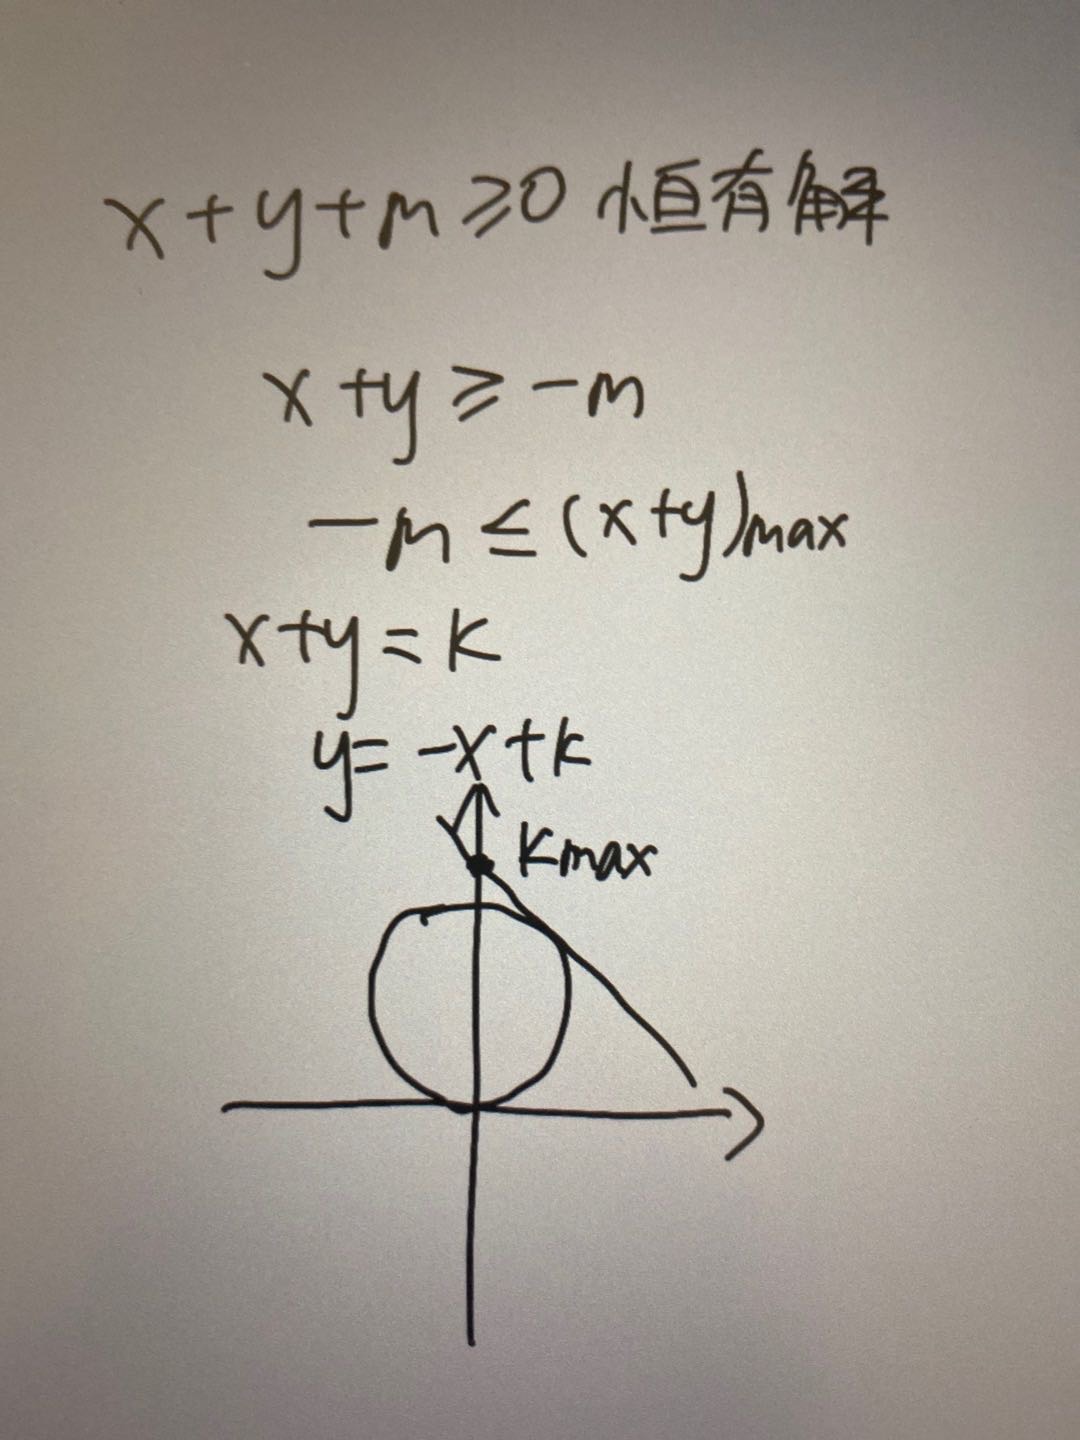 x+y+m≥0 恒有解
x+y≥-m
-m≤(x+y)max
x+y=k
y=-x+k
kmax